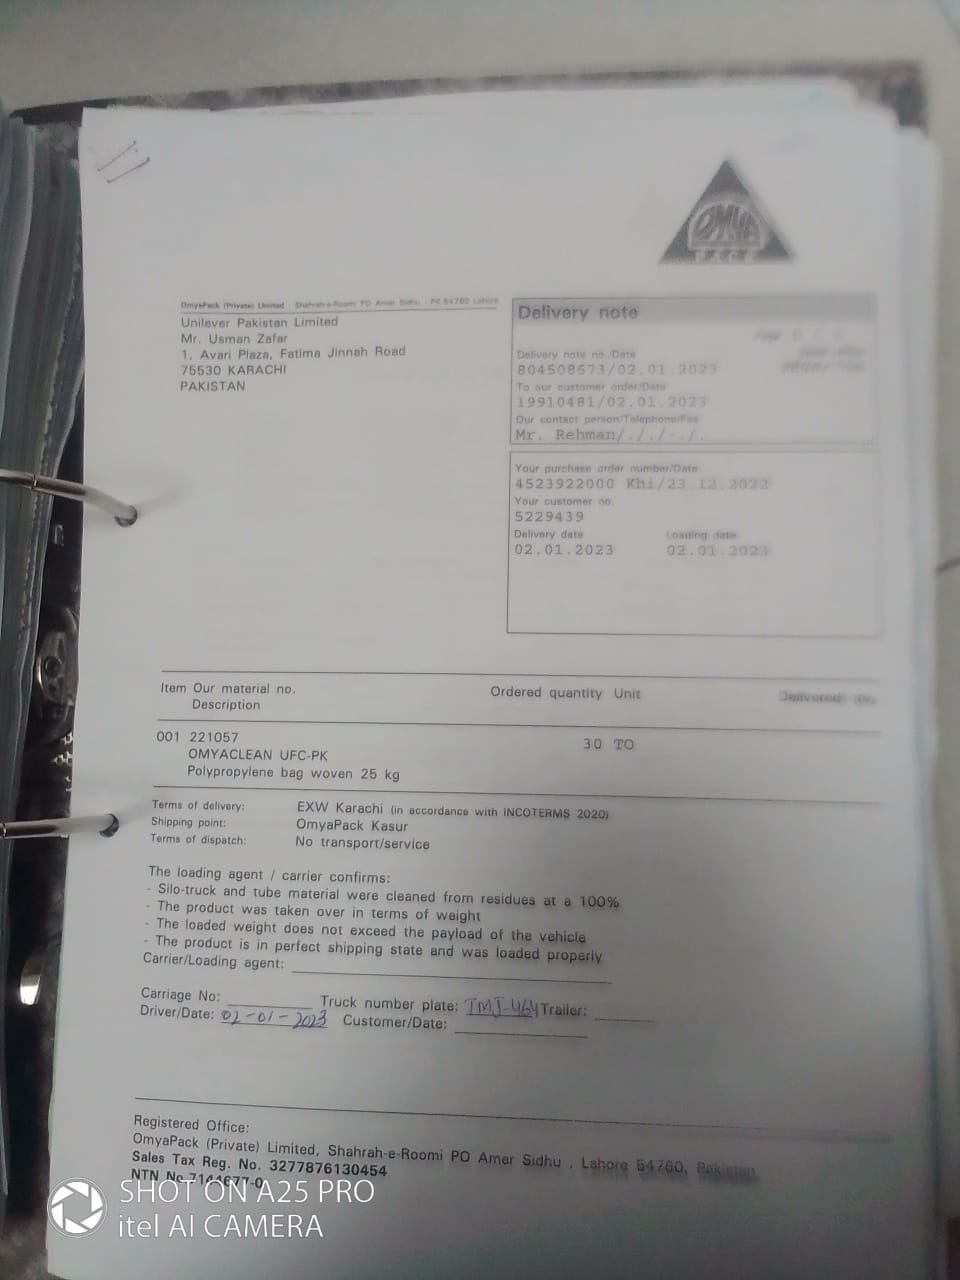 OMYA
OmyaPack (Private) Limited - Shahrah-e-Roomi PO Amer Sidhu - PK-54760 Lahore
Unilever Pakistan Limited
Mr. Usman Zafar
1, Avari Plaza, Fatima Jinnah Road
75530 KARACHI
PAKISTAN
Delivery note
Page
Delivery note no./Date
804508673/02.01.2023
To our customer order/Date
19910481/02.01.2023
Our contact person/Telephone/Fax
Mr. Rehman/././-./.
Your purchase order number/Date
4523922000 Khi/23.12.2022
Your customer no.
5229439
Delivery date Loading date
02.01.2023 02.01.2023
Item Our material no. Ordered quantity Unit Delivered
Description
001 221057 30 TO
OMYACLEAN UFC-PK
Polypropylene bag woven 25 kg
Terms of delivery: EXW Karachi (in accordance with INCOTERMS 2020)
Shipping point: OmyaPack Kasur
Terms of dispatch: No transport/service
The loading agent / carrier confirms:
- Silo-truck and tube material were cleaned from residues at a 100%
- The product was taken over in terms of weight
- The loaded weight does not exceed the payload of the vehicle
- The product is in perfect shipping state and was loaded properly
Carrier/Loading agent:
Carriage No: Truck number plate: TMJ-464 Trailer:
Driver/Date: 02-01-2023 Customer/Date:
Registered Office:
OmyaPack (Private) Limited, Shahrah-e-Roomi PO Amer Sidhu , Lahore 54760, Pakistan
Sales Tax Reg. No. 3277876130454
NTN No
SHOT ON A25 PRO
itel AI CAMERA